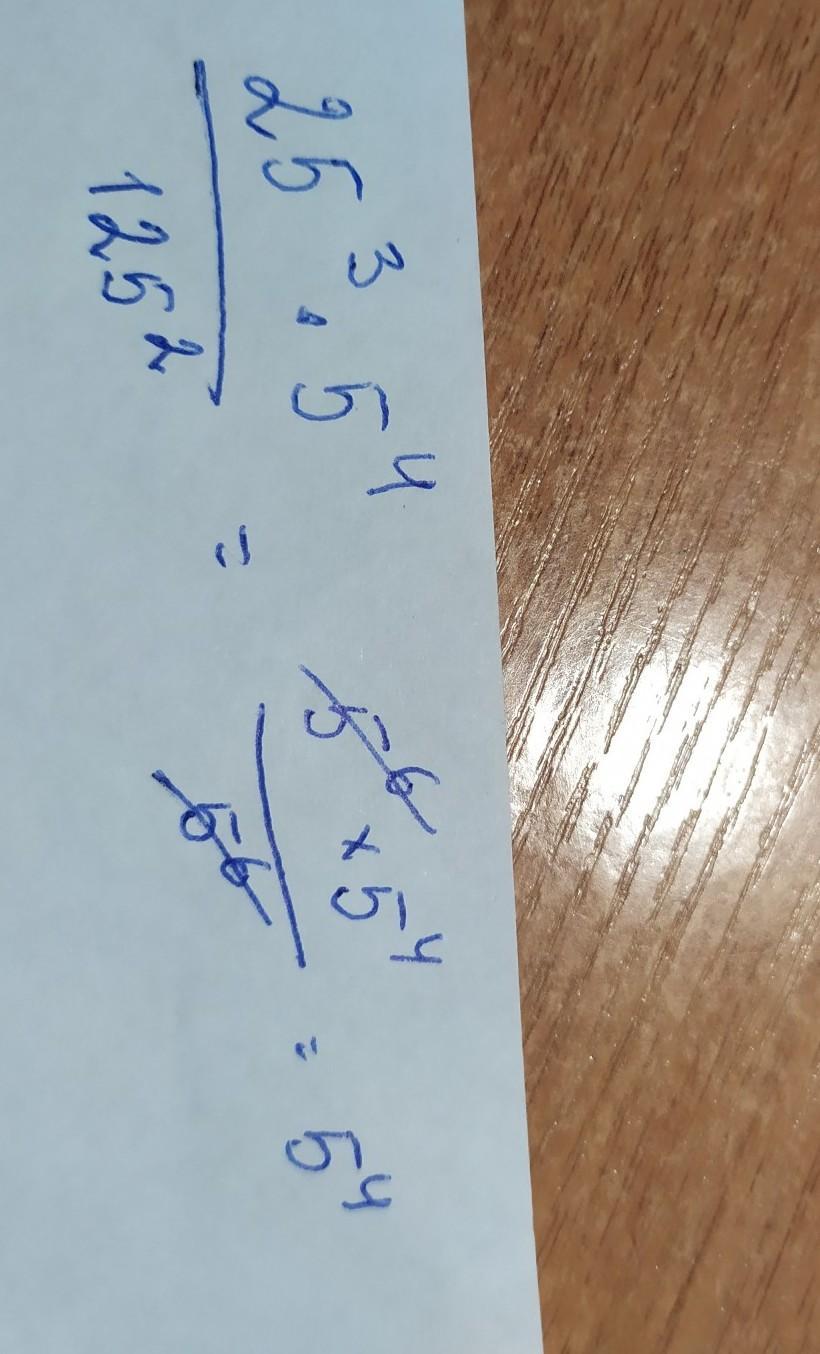 25³ · 5⁴ / 125² = 5⁶ × 5⁴ / 5⁶ = 5⁴